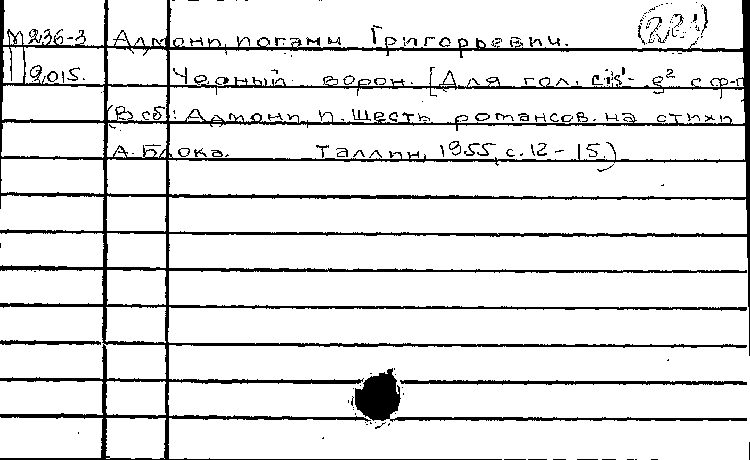 (221)
М236-3 Адмони, Иоганн Григорьевич.
II 9015. Черный ворон. [Для гол. cis¹- g² с ф-п]
(В сб: Адмони, И. Шесть романсов. на стихи
А. Блока. Таллин, 1955, с. 12 - 15.)